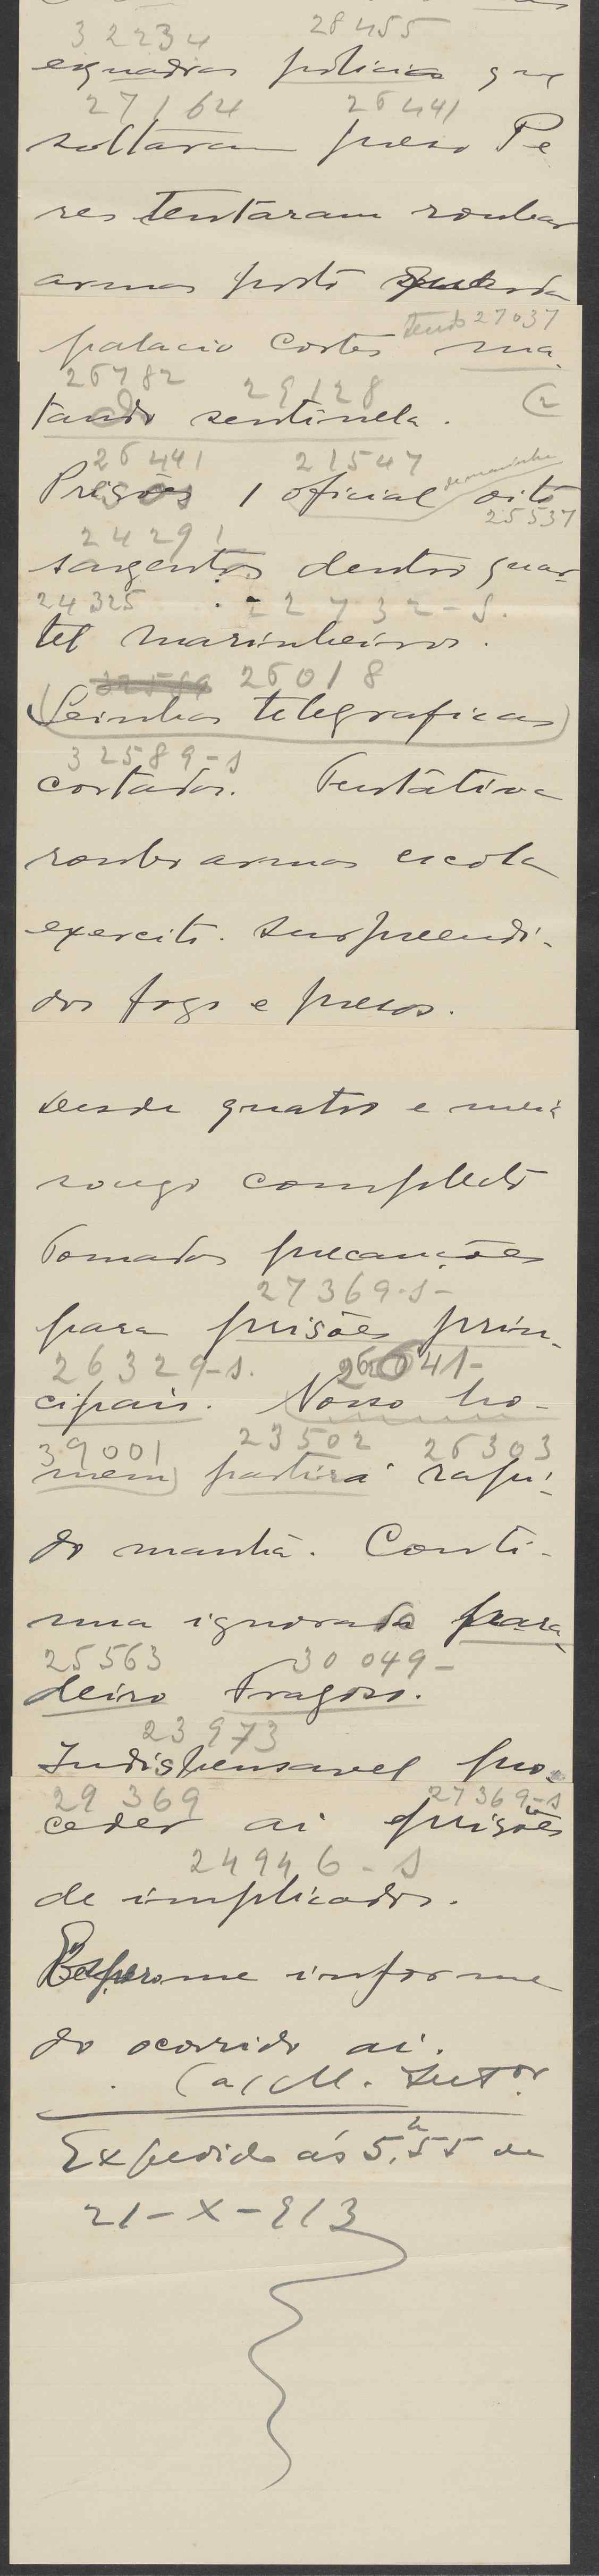 32234 28455
esquadras policia que
27164 26441
soltaram preso Pe
res tentaram roubar
armas posto guarda
palacio Cortes tendo 27037 ma-
26782 29128
tando sentinela. (2
26441 21547
Prisões 1 oficial de marinha oito
25537
24291
sargentos dentro quar-
24325 22732-s.
tel marinheiros.
32589 26018
(Leinhas telegraficas)
32589-s
cortadas. Tentativa
roubo armas escola
exercito. Surpreendi-
dos fogo e presos.
Desde quatro e meia
socego completo
Tomadas precauções
27369-s-
para prisões prin-
26329-s. 26041-
cipais. Nosso ho-
39001 23502 26303
mem) partirá rapi-
do manhã. Conti-
nua ignorado para-
25563 30049-
deiro Fragoso.
23973
Indispensavel pro-
29369 27369-s
ceder ai prisões
24946-s
de implicados.
Espero me informe
do ocorrido ai.
(a) M. Int.or
Expedido ás 5,h55 de
21-X-913